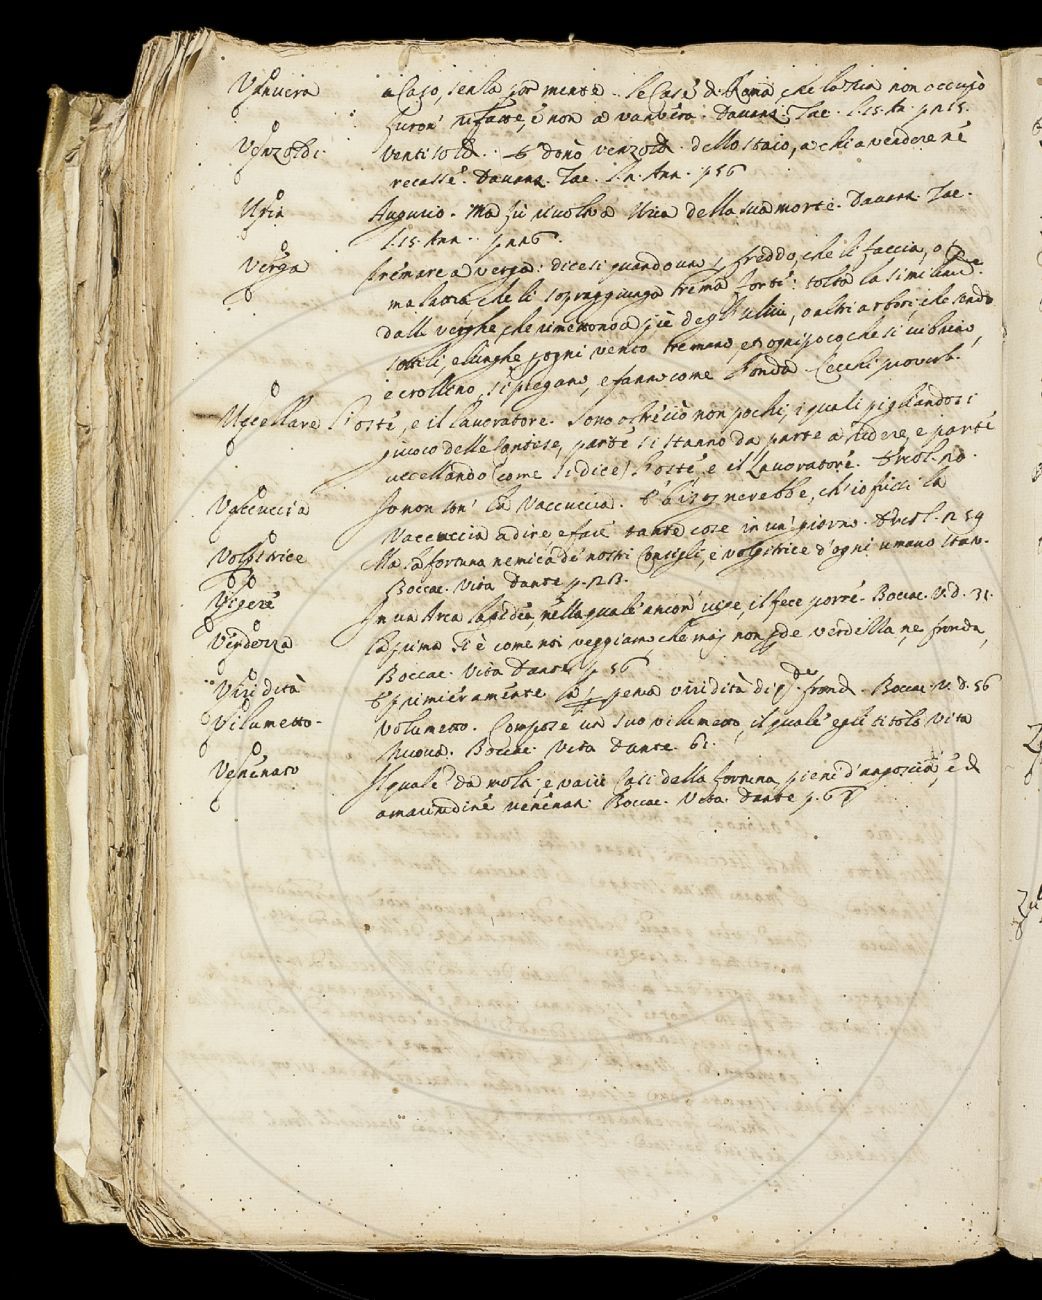 Vanvera a Caso, senza por mente. le Case di Roma che la Zia non occupò
furon' rifatte, e non a vanvera. Davanz. Tac. l. 15. An. p.
Venzoldi. venti soldi. donò venzoldi dello staio, a chi a vendere ne
recasse. Davanz. Tac. An. p. 56
Uria Augurio. Ma fu rivolto a Uria della sua morte. Davanz. Tac.
l. 15. Ann. p.
Verga tremare a verga: dicesi quando uno, freddo, che li faccia, o
malattia che li sopraggiunga trema forte: tolta la similitudine
dalle verghe, che rimettono a piè degli Ulivi, o altri arbori, che sendo
sottili, e lunghe, ogni vento tremano, et ogni poco che si
e crollino, si piegano, e fanno come l'onda Cecchi proverb.
Uccellare l'oste, e il lavoratore. sono oltreciò non pochi, i quali pigliandosi
giuoco delle contese, parte si stanno da parte a ridere, e parte
uccellando (come si dice) l'oste e il Lavoratore. Ercol.
Vaccuccia Io non son' la Vaccuccia. E' bisognerebbe, ch'io fussi la
Vaccuccia a dire e fare tante cose in un' giorno. Ercol. 54
Volgitrice Ma la fortuna nemica de' nostri Consigli, e volgitrice d'ogni umano stato.
Boccac. Vita Dante p.
Vigere In una Arca lapidea, nella quale ancor' vige, il fece porre. Boccac. V. d. 31.
Verdezza La prima si è come noi veggiamo, che mai non perde verdezza, ne fronda,
Boccac. Vita Dante p. 56
Viridità E primieramente la perpetua viridità di fronde. Boccac. V. d. 56
Vilumetto. Volumetto. Compose un suo vilumetto, il quale egli titolò vita
Nuova. Boccac. Vita Dante. 61.
Venenato Il quale da molti, e varii Casi della fortuna pieni d'angoscia, e di
amaritudine venenati Boccac. Vita Dante p.